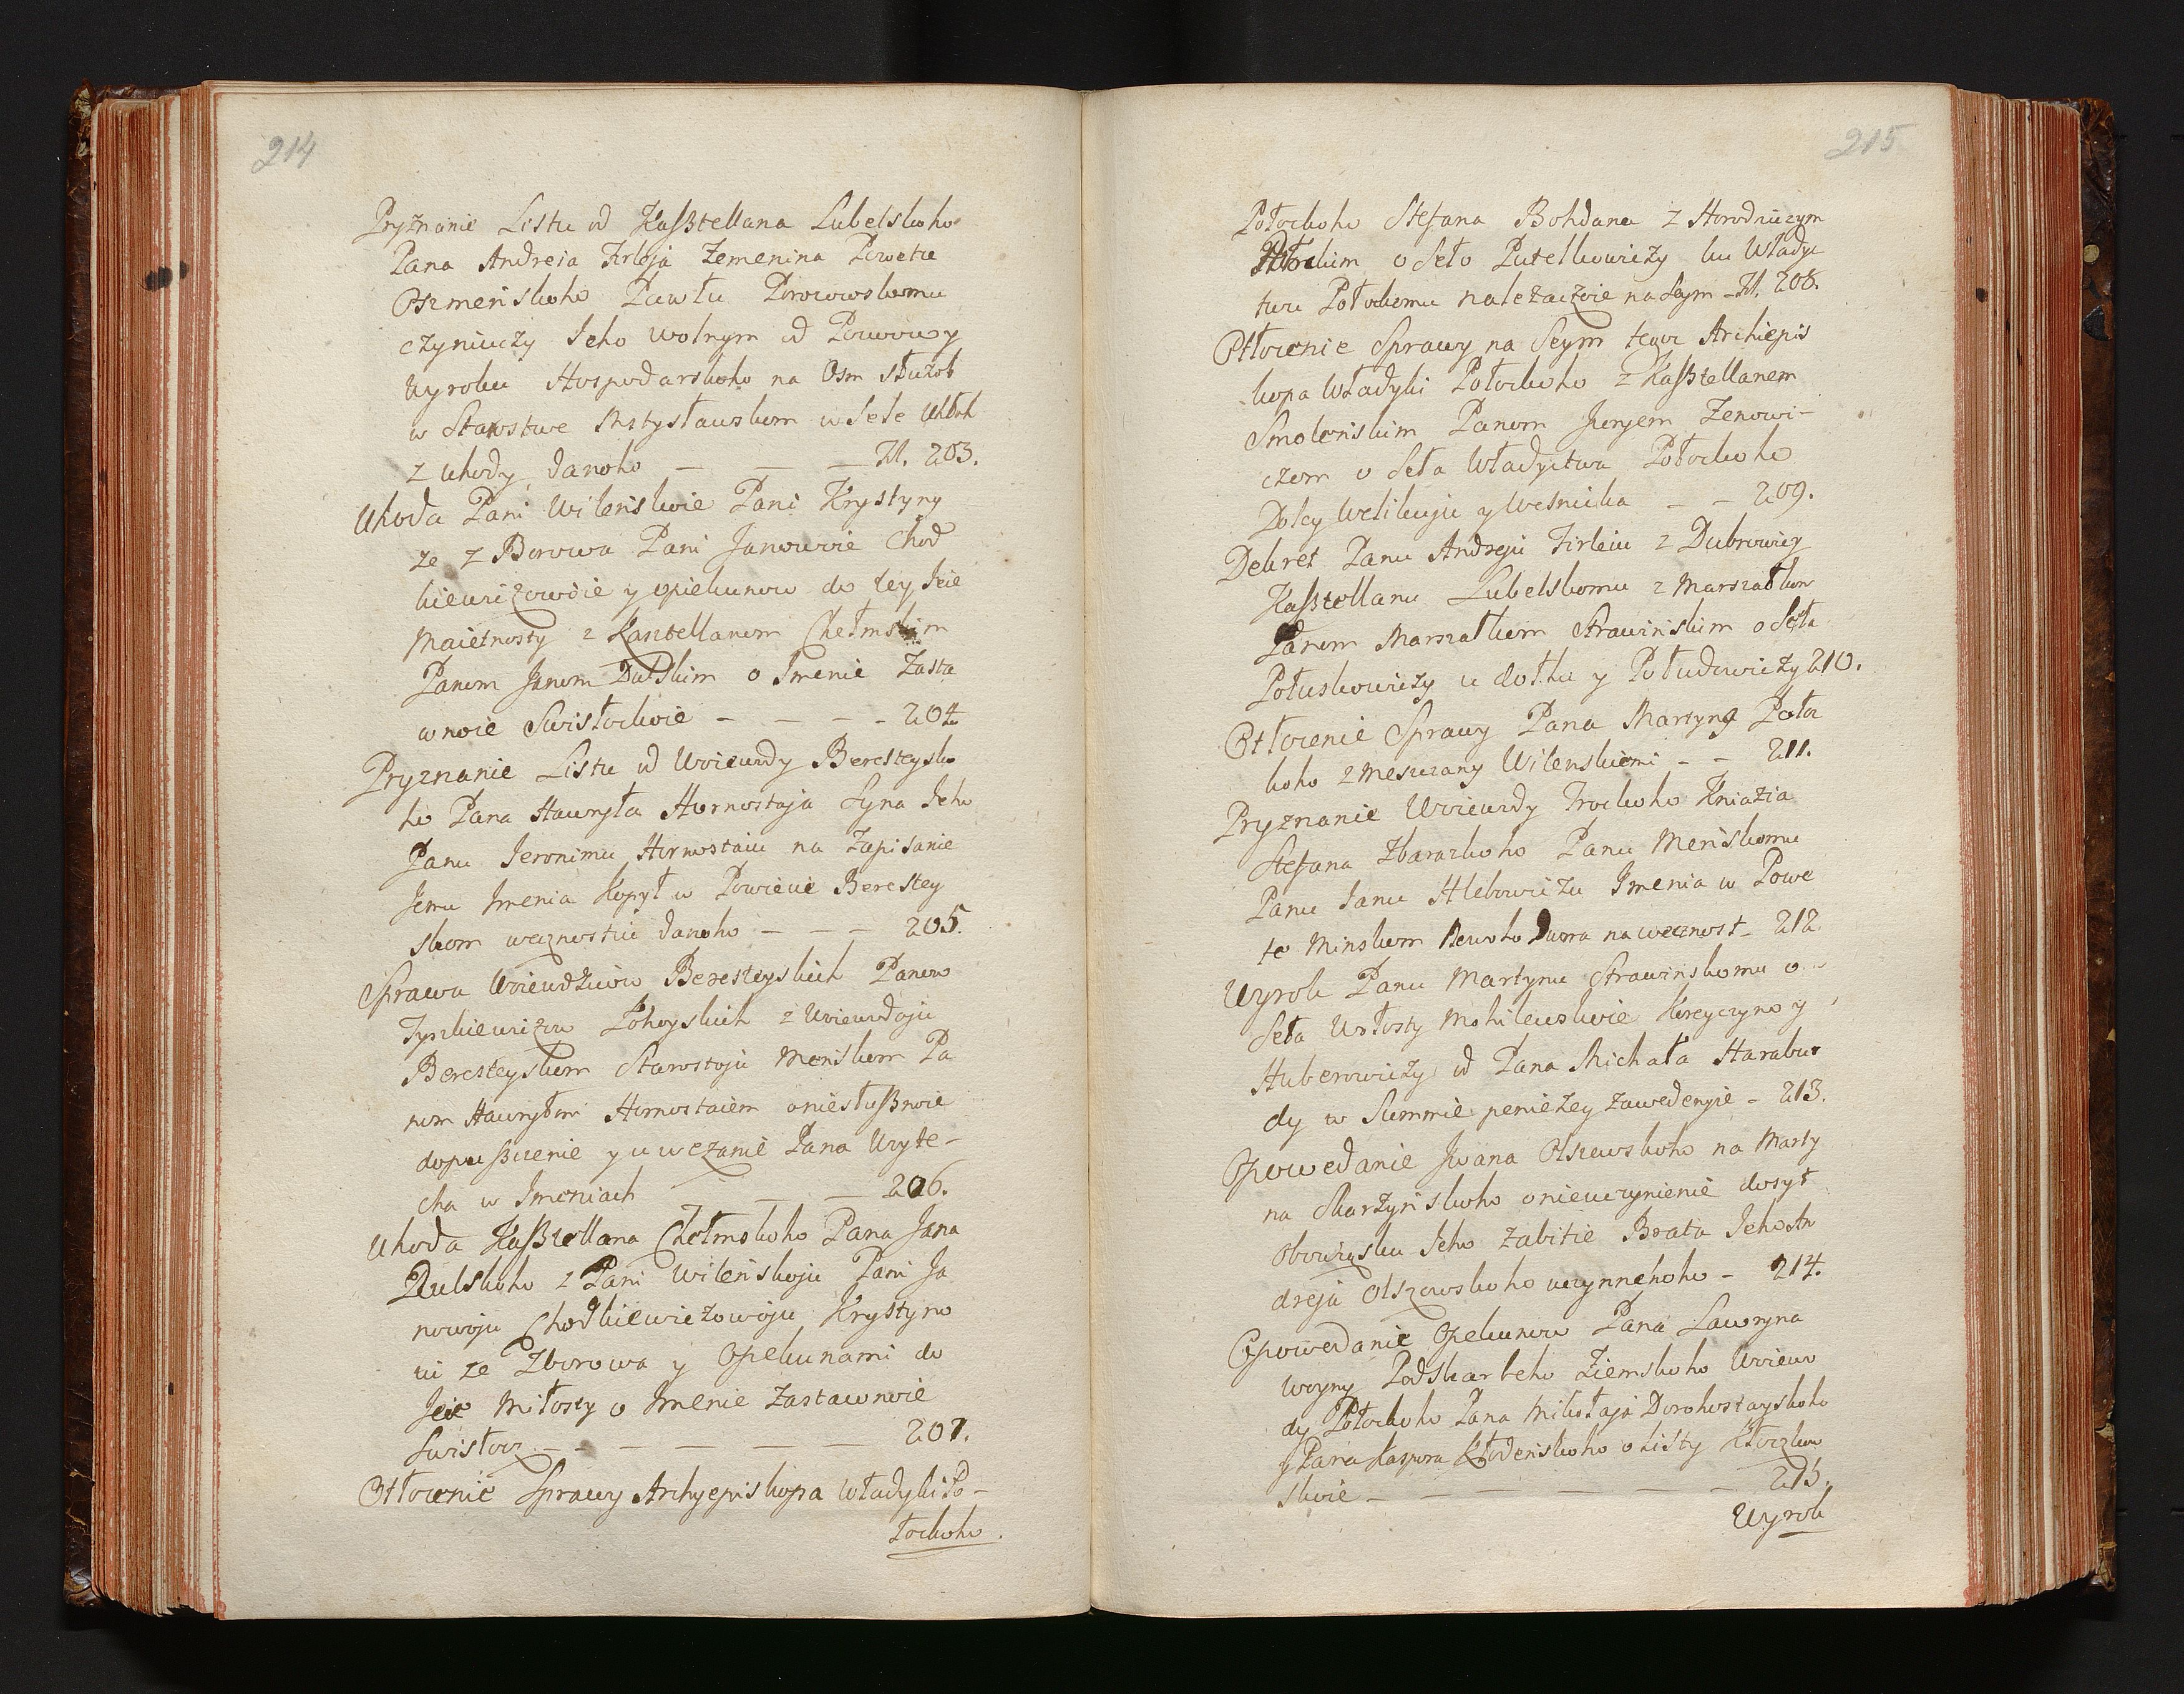 214
Pryznanie Listu od Kaßtellana Lubelskoho
Pana Andreia Firleja Zemenina Powetu
Oszmenskoho Pawłu
czyniuczy Jeho wolnym od Powowy
Wyroku Hospodarskoho na Osm służob
w Starostwe Mstysławskom w Sele
z uhody danoho — — — N. 203.
Uhoda Pani Wilenskoie Pani Krystyny
ze Z Borowa Pani Janowoie Chod
kiewiczowoie y opiekunow do tey Jeie
Maietnosty z Kasztellanom Chełmskim
Panom Janom Dulskim o Imenie Zasta
wnoie Swisłockoie — — — — 204
Pryznanie Listu od Woiewody Beresteysko
ho Pana Hawryła Hornostaja Syna Jeho
Panu Jeronimu Hornostaiu na Zapisanie
Jemu Imenia Kopył w Powiecie Berestey
skom wecznostiu danoho — — — 205.
Sprawa Woiewodzicow Beresteyskich Panow
Tyszkiewiczow Łohoyskich z Woiewodoju
Beresteyskom Starostoju Menskom Pa
nom Hawryłom Hornostaiem o niesłußnoie
dopußczenie y uwezanie Pana Woyte-
cha w Imeniach — — 206.
Uhoda Kaßtellana Chełmskoho Pana Jana
Dulskoho z Pani Wilenskoju Pani Ja
nowoju Chodkiewiczowoju Krystyno
iu ze Zborowa y Opekunami do
Jeie Miłosty o Imenie Zastawnoie
Swisłocz — — — — — — 207.
Otłoienie Sprawy Archyepiskopa Władyki Po-
łockoho.
215
Połockoho Stefana Bohdana z Horodniczym
Połockim o Seło Putelkowiczy ku Władyc
twu Połockomu należaczoie na Seym - N. 208.
Otłoienie Sprawy na Seym tohoż Archiepis
kopa Władyki Połockoho z Kaßtellanem
Smolenskim Panom Jurjem Zenowi-
czom o Seła Władyctwa Połockoho
Dolcy Welikuju y Wesnicka — — 209.
Dekret Panu Andreju Firleiu z Dubrowicy
Kaßtellanu Lubelskomu z Marszałkom
Panom Marszałkom Strawinskim o Seła
Połuskowiczy u dołku y Połudowiczy 210.
Otłoienie Sprawy Pana Martyna Połoc
koho z Mesczany Wilenskiemi — — 211.
Pryznanie Woiewody Trockoho Kniazia
Stefana Zbarazkoho Panu Menskomu
Panu Janu Hlebowiczu Imenia w Powe
te Minskom Nowoho Dwora na wecznost - 212.
Wyrok Panu Martynu Strawinskomu o
Seła Wołosty Mohilewskoie Koreyczyno y
Huberowiczy od Pana Michała Harabur
dy w Summie penieżey zawedenyie — 213.
Opowedanie Iwana Olszewskoho na Marty
na Skarżynskoho o nieuczynienie dosyt
obowiązku Jeho zabitie Brata Jeho An
dreja Olszowskoho uczynnehoho — 214.
Opowedanie Opekunow Pana Lawryna
Woyny Podskarbeho Ziemskoho Woiewo
dy Połockoho Pana Mikołaja Dorohostayskoho
y Pana Kaspora Kłodenskoho o Listy
skoie — — — — — — — 215.
Wyrok